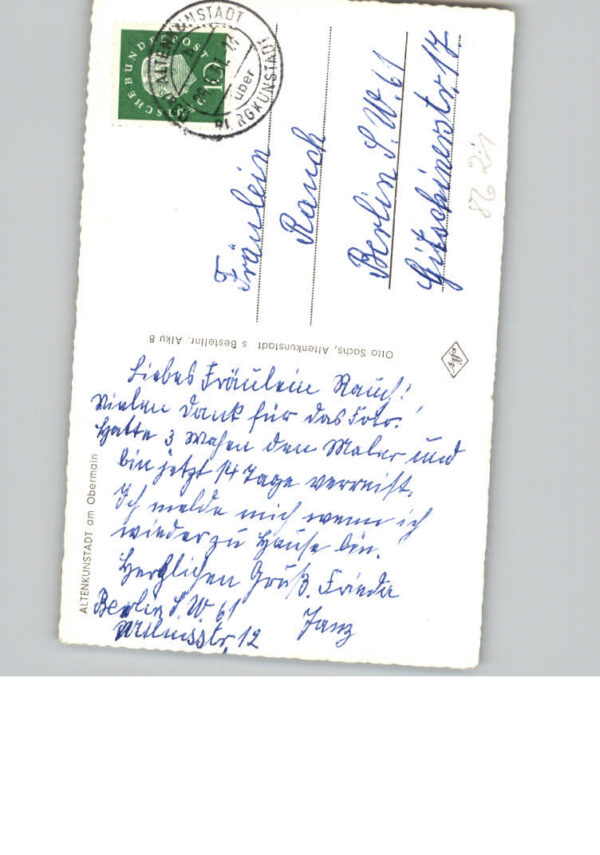 DEUTSCHE BUNDESPOST
10
ALTENKUNSTADT
über
BURGKUNSTADT
Fräulein
Rauch
Berlin S.W. 61
Gitschinerstr. 17.
Otto Sachs, Altenkunstadt s Bestellnr. Alku 8
Agfa
ALTENKUNSTADT am Obermain
Liebes Fräulein Rauch!
Vielen Dank für das Foto!
Hatte 3 Wochen den Maler und
bin jetzt 14 Tage verreist.
Ich melde mich wenn ich
wieder zu Hause bin.
Herzlichen Gruß. Frieda
Janz
Berlin S.W. 61
Wilmsstr. 12